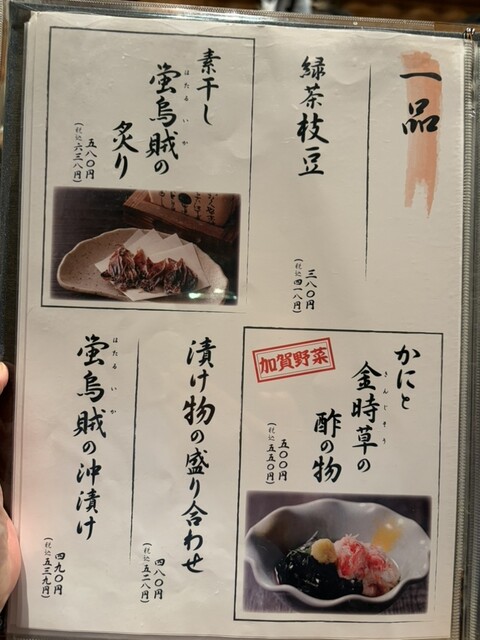 一品
緑茶枝豆
三八〇円
(税込四一八円)
素干し
ほたるいか
蛍烏賊の
炙り
五八〇円
(税込六三八円)
かにと
きんじそう
金時草の
酢の物
加賀野菜
五〇〇円
(税込五五〇円)
漬け物の盛り合わせ
四八〇円
(税込五二八円)
ほたるいか
蛍烏賊の沖漬け
四九〇円
(税込五三九円)